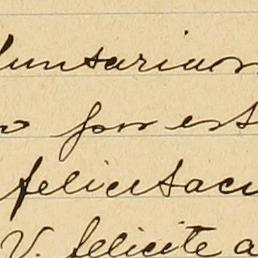 luntarior
o por est
felicitaci
V. felicite a